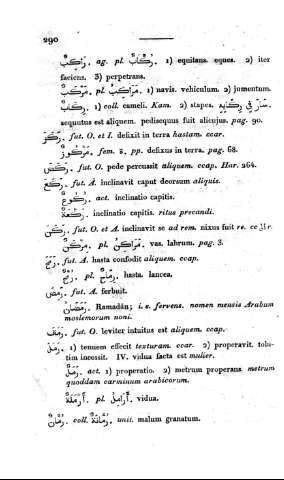 290
رَاكِبٌ. ag. pl. رُكَّابٌ. 1) equitans. eques. 2) iter
faciens. 3) perpetrans.
مَرْكَبٌ. pl. مَرَاكِبُ. 1) navis. vehiculum. 2) jumentum.
رِكَابٌ. 1) coll. cameli. Kam. 2) stapes. سَارَ فِى رِكَابِهِ.
sequutus est aliquem. pedisequus fuit alicujus. pag. 90.
رَكَزَ. fut. O. et I. defixit in terra hastam. ccar.
مَرْكُوزٌ. fem. ة. pp. defixus in terra. pag. 68.
رَكَضَ. fut. O. pede percussit aliquem. ccap. Har. 264.
رَكَعَ. fut. A. inclinavit caput deorsum aliquis.
رُكُوعٌ. act. inclinatio capitis.
رَكْعَةٌ. inclinatio capitis. ritus precandi.
رَكَنَ. fut. O. et A. inclinavit se ad rem. nixus fuit re.
مِرْكَنٌ. pl. مَرَاكِنُ. vas. labrum. pag. 3.
رَمَحَ. fut. A. hasta confodit aliquem. ccap.
رُمْحٌ. pl. رِمَاحٌ. hasta. lancea.
رَمِضَ. fut. A. ferbuit.
رَمَضَانُ. Ramadân; i. e. fervens. nomen mensis Arabum
moslemorum noni.
رَمَقَ. fut. O. leviter intuitus est aliquem. ccap.
رَمَلَ. 1) tenuem effecit texturam. ccar. 2) properavit. tolu-
tim incessit. IV. vidua facta est mulier.
رَمَلٌ. act. 1) properatio. 2) metrum properans. metrum
quoddam carminum arabicorum.
أَرْمَلَةٌ. pl. أَرَامِلُ. vidua.
رُمَّانٌ. coll. رُمَّانَةٌ. unit. malum granatum.